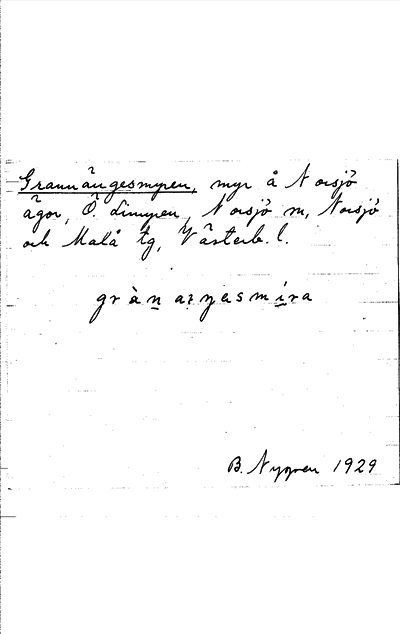 Grannängesmyren, myr å Norsjö
ägor, Ö. Limyren, Norsjö sn, Norsjö
och Malå tg, Västerb. l.
gràn aŋesmira
B. Nygren 1929